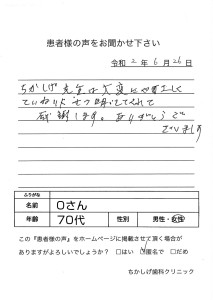 患者様の声をお聞かせ下さい
令和 2 年 6 月 26 日
ちかしげ先生は大変にやさしく
ていねいに せつ明してくれて
感謝します。ありがとうご
ざいます
ふりがな
名前 Oさん
年齢 70代 性別 男性・女性
この『患者様の声』をホームページに掲載させて頂く場合が
ありますがよろしいでしょうか? □はい ☑匿名で □だめ
ちかしげ歯科クリニック